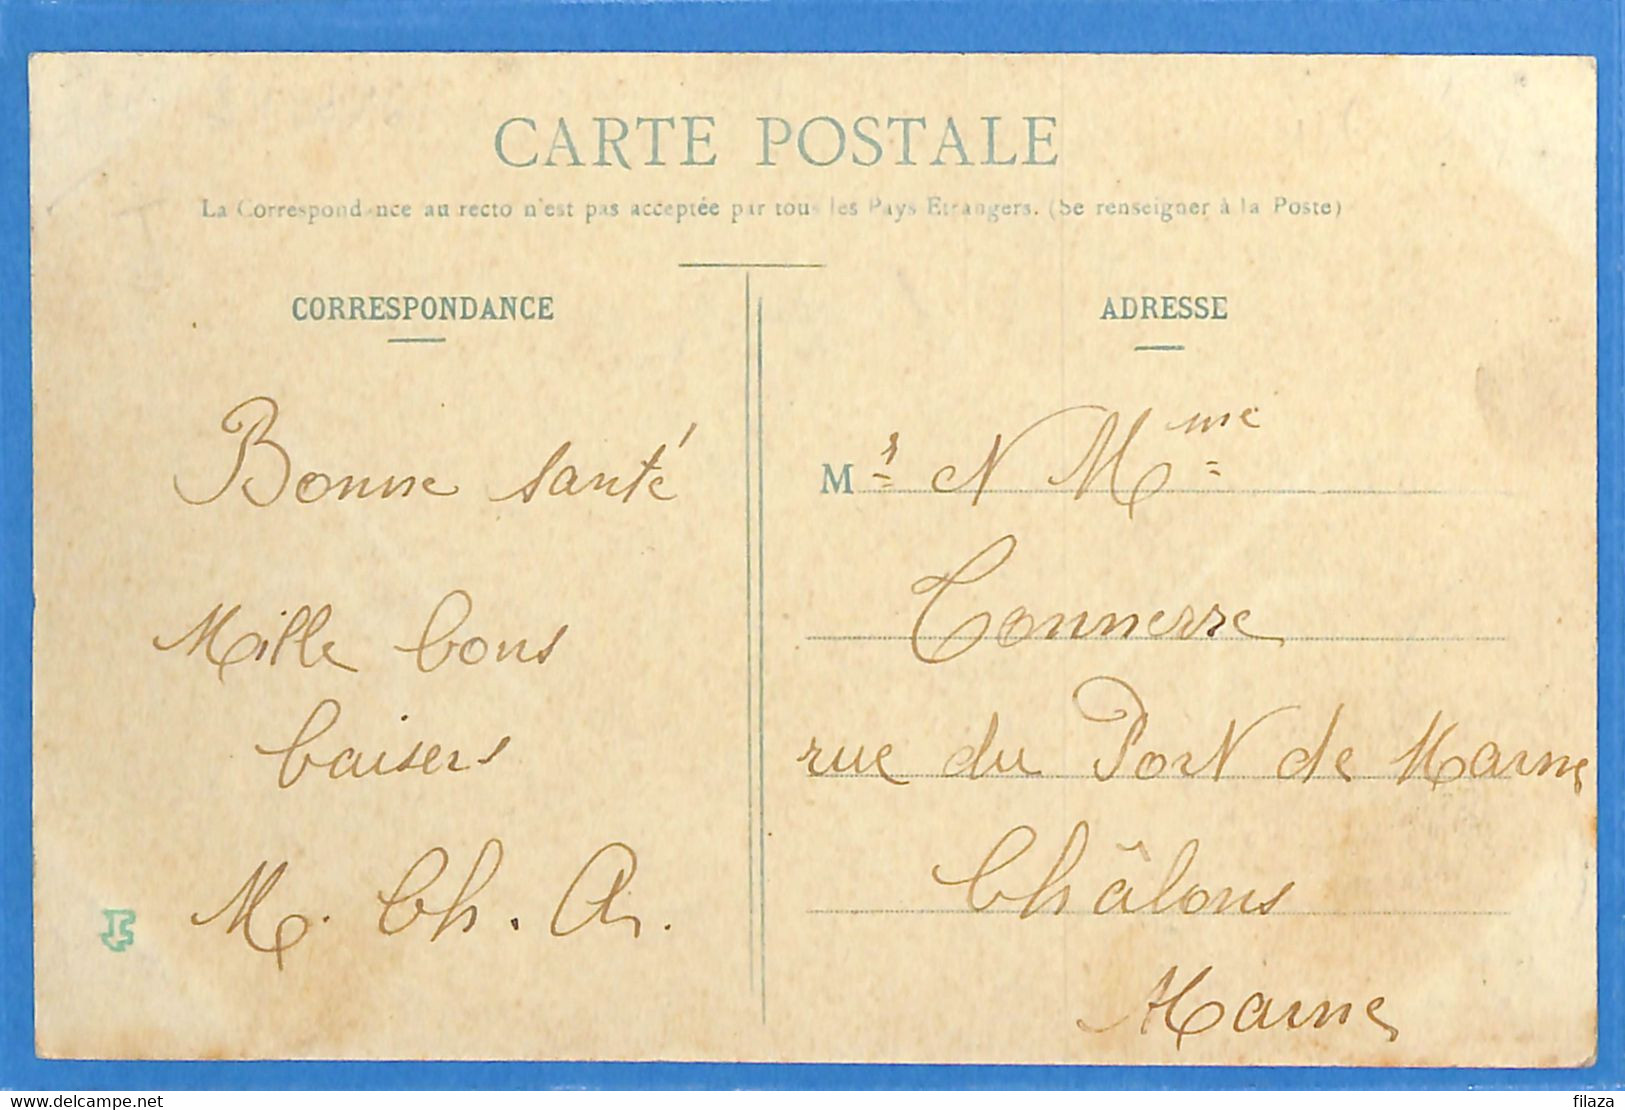 CARTE POSTALE
La Correspondance au recto n'est pas acceptée par tous les Pays Etrangers. (Se renseigner à la Poste)
CORRESPONDANCE
Bonne santé
Mille bons
baisers
M. Ch. A.
ADRESSE
Mr et Mme
Tonnerre
rue du Port de Marne
Châlons
Marne
www.delcampe.net
filaza